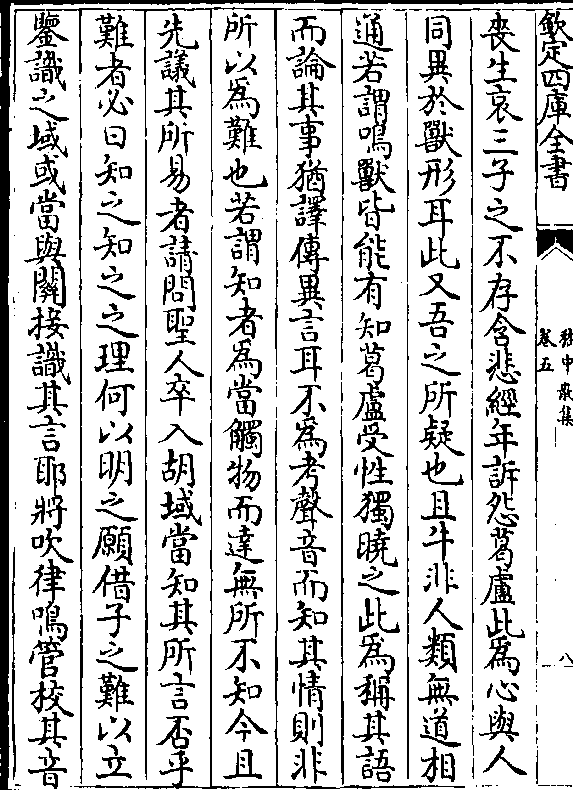 欽定四庫全書
嵇中散集
卷五
八
喪生哀三子之不存含悲經年訴怨葛盧此為心與人
同異於獸形耳此又吾之所疑也且牛非人類無道相
通若謂鳴獸皆能有知葛盧受性獨曉之此為稱其語
而論其事猶譯傳異言耳不為考聲音而知其情則非
所以為難也若謂知者為當觸物而達無所不知今且
先議其所易者請問聖人卒入胡域當知其所言否乎
難者必曰知之知之之理何以明之願借子之難以立
鑒識之域或當與關接識其言耶將吹律鳴管校其音